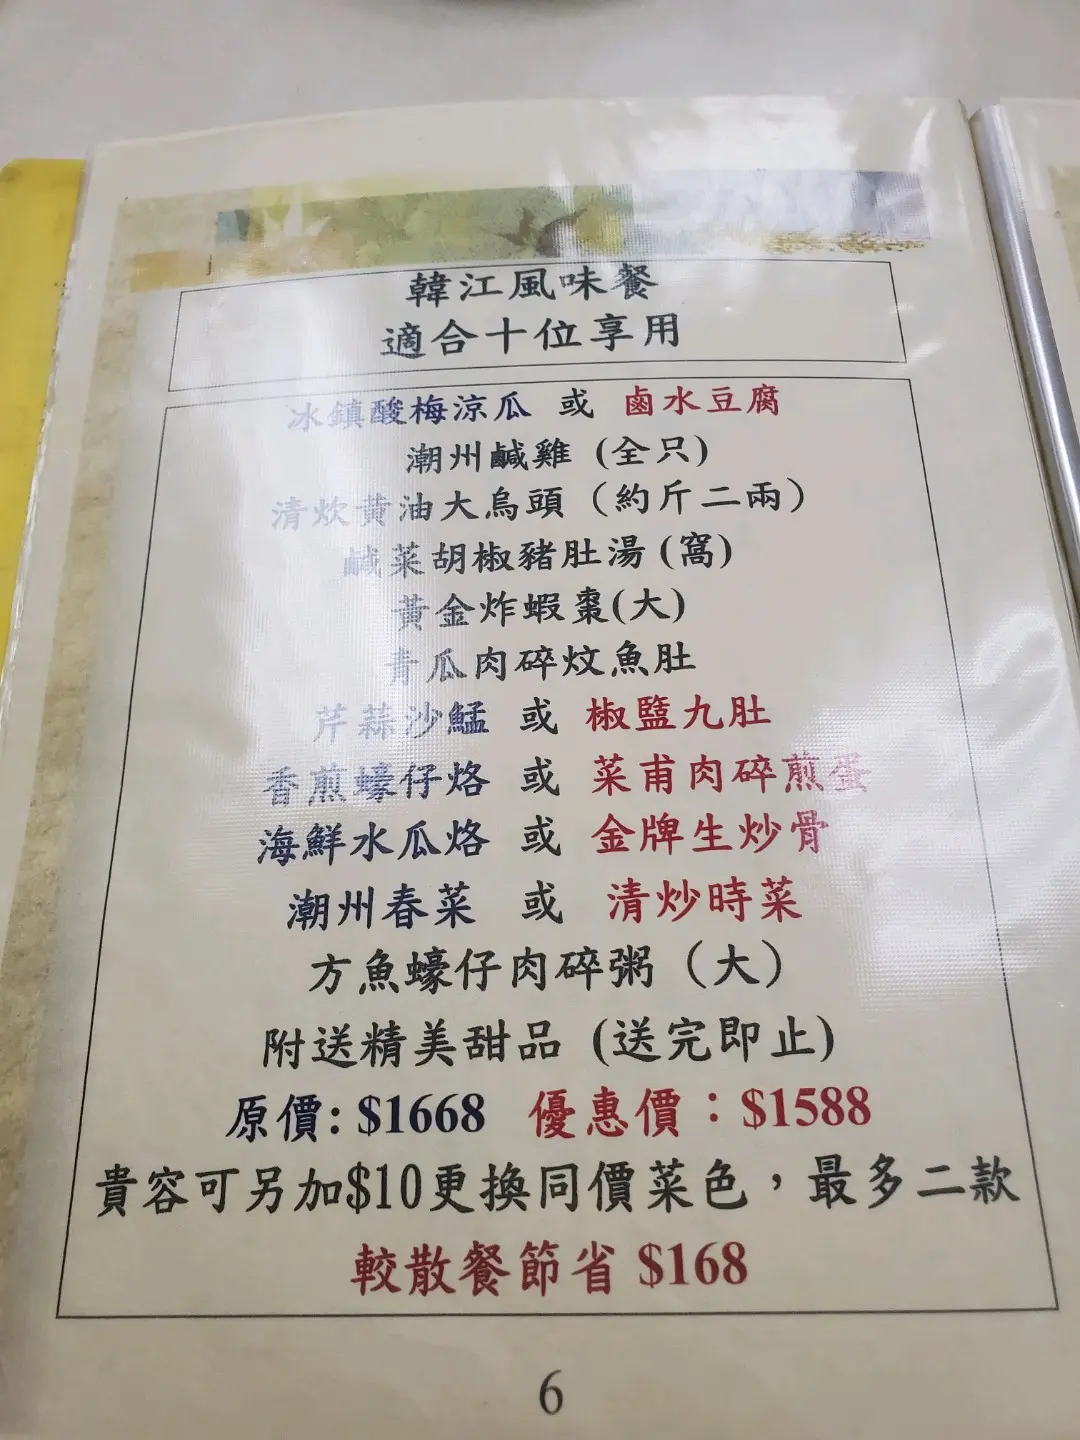 韓江風味餐
適合十位享用
冰鎮酸梅涼瓜 或 鹵水豆腐
潮州鹹雞 (全只)
清炊黃油大烏頭（約斤二兩）
鹹菜胡椒豬肚湯 (窩)
黃金炸蝦棗(大)
青瓜肉碎炆魚肚
芹蒜沙鯭 或 椒鹽九肚
香煎蠔仔烙 或 菜甫肉碎煎蛋
海鮮水瓜烙 或 金牌生炒骨
潮州春菜 或 清炒時菜
方魚蠔仔肉碎粥（大）
附送精美甜品 (送完即止)
原價: $1668 優惠價：$1588
貴容可另加$10更換同價菜色，最多二款
較散餐節省 $168
6